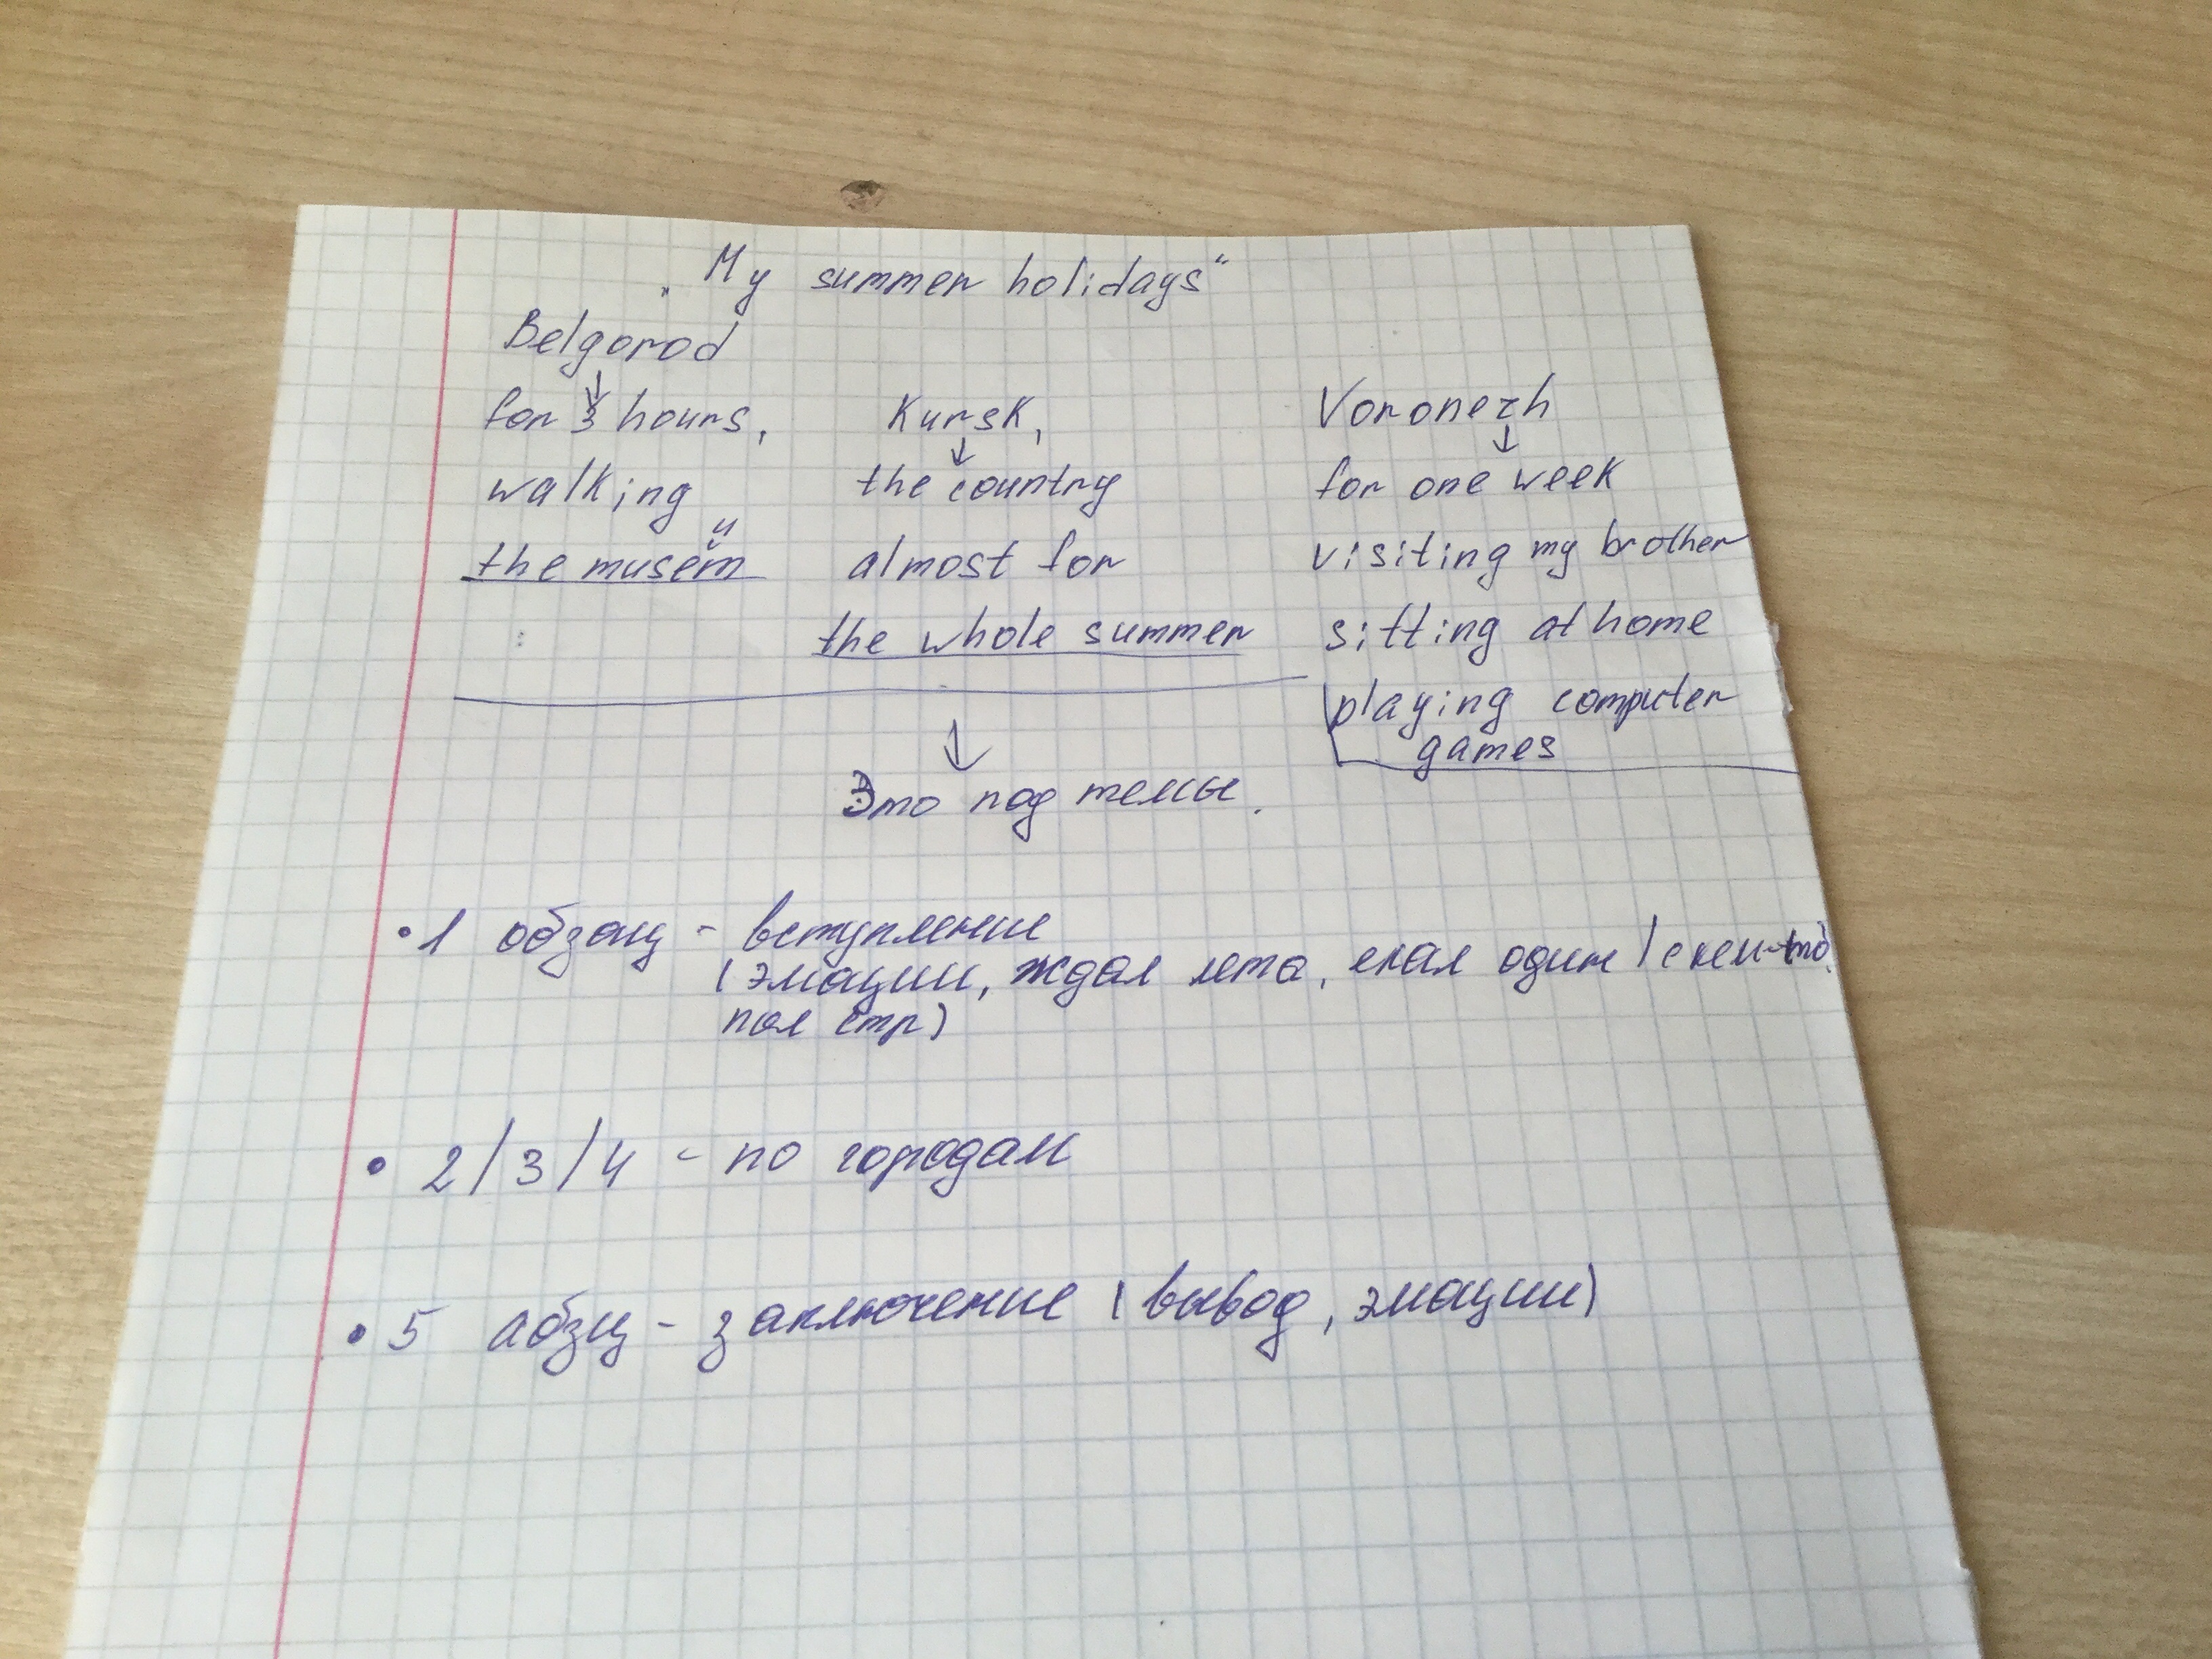 „My summer holidays“
Belgorod
for 3 hours,
walking
the museum
Kursk,
the country
almost for
the whole summer
Voronezh
for one week
visiting my brother
sitting at home
playing computer
games
Это под темы.
• 1 обзац - вступление
(эмации, ждал лета, ехал один / с кем-то,
пол стр)
• 2/3/4 - по городам
• 5 абзц - заключение (вывод, эмации)